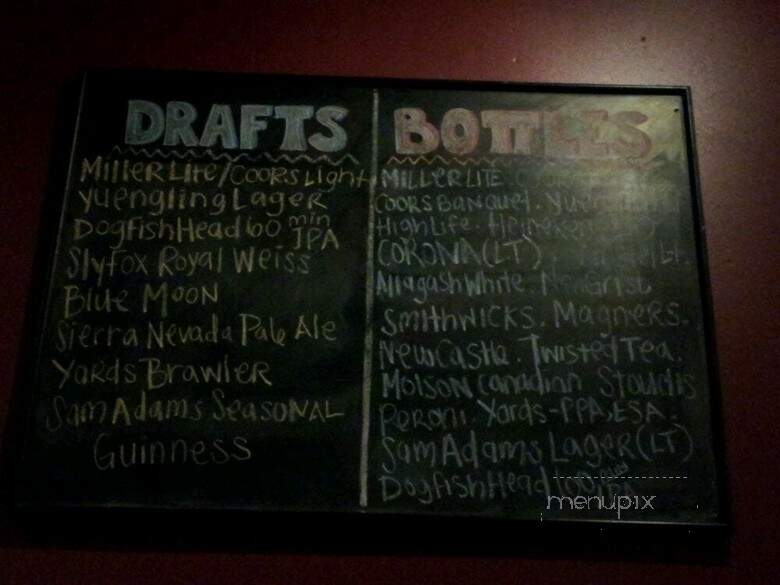 DRAFTS
Miller Lite/Coors Light
Yuengling Lager
DogfishHead 60 min IPA
Slyfox Royal Weiss
Blue Moon
Sierra Nevada Pale Ale
Yards Brawler
Sam Adams Seasonal
Guinness
BOTTLES
MILLER LITE
Coors Banquet.
High Life. Heineken
CORONA(LT)
Allagash White. NewGrist
Smithwicks. Magners.
NewCastle. Twisted Tea.
Molson Canadian Stoudts
Peroni. Yards-PPA, ESA.
Sam Adams Lager(LT)
DogfishHead
menupix